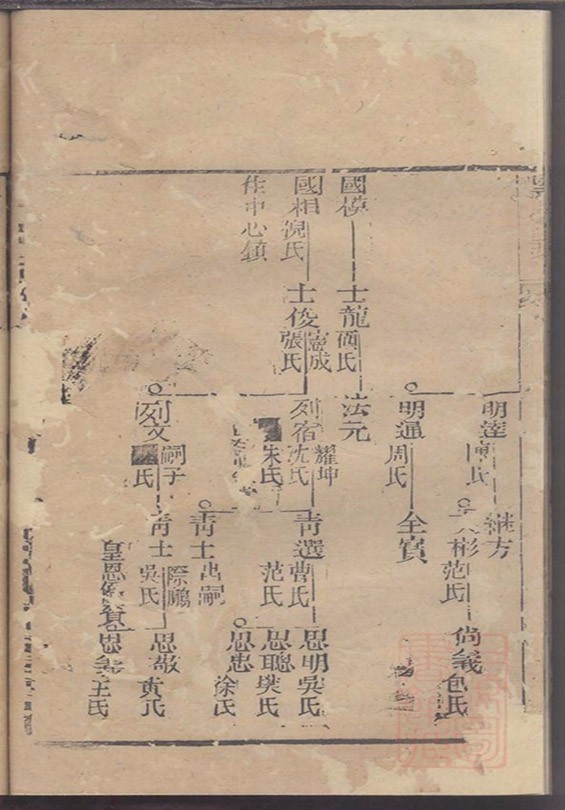 國模
國相 倪氏
住中心鎮
士龍
士俊 憲成 張氏
明達
明通 周氏
法元
列宿 耀坤 沈氏
朱氏
列文 嗣子 氏
継方
彬 范氏
全寶
青選 曹氏
范氏
青士 出嗣
青士 際鵬 吳氏
皇恩
尙義 包氏
思明 吳氏
思聰 樊氏
思忠 徐氏
思敬 黄氏
思義 王氏